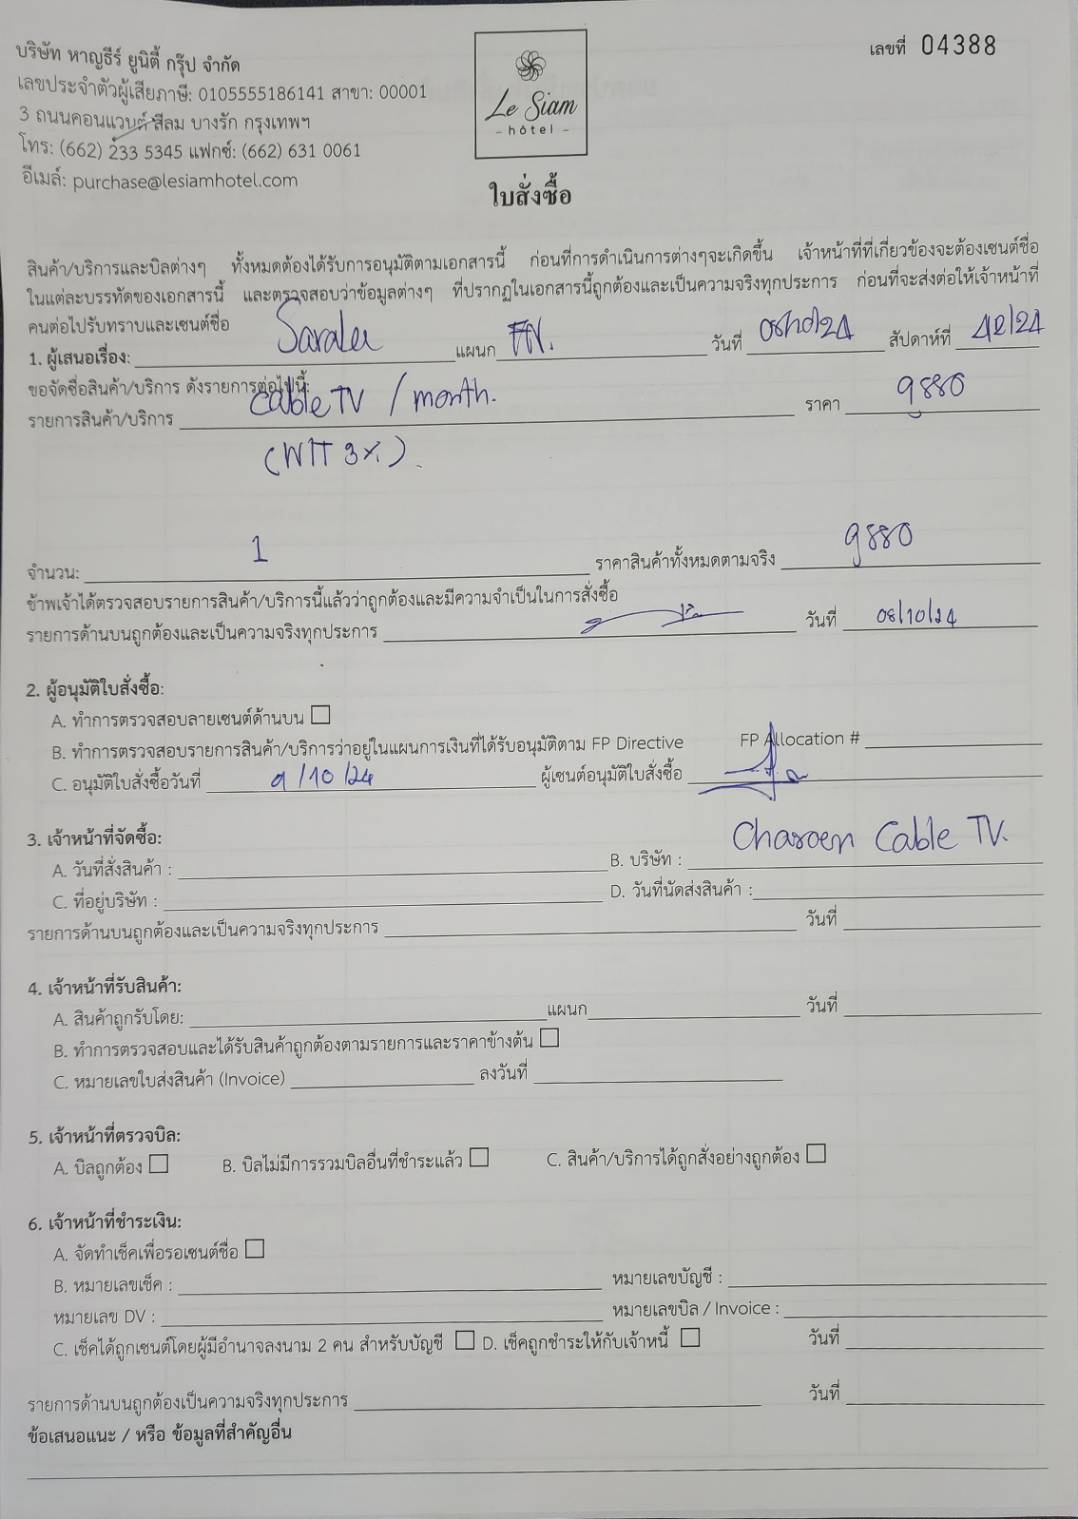 บริษัท หาญธีร์ ยูนิตี้ กรุ๊ป จำกัด
เลขที่ 04388
เลขประจำตัวผู้เสียภาษี: 0105555186141 สาขา: 00001
3 ถนนคอนแวนต์ สีลม บางรัก กรุงเทพฯ
โทร: (662) 233 5345 แฟกซ์: (662) 631 0061
อีเมล์: purchase@lesiamhotel.com
Le Siam
- hôtel -
ใบสั่งซื้อ
สินค้า/บริการและบิลต่างๆ ทั้งหมดต้องได้รับการอนุมัติตามเอกสารนี้ ก่อนที่การดำเนินการต่างๆจะเกิดขึ้น เจ้าหน้าที่ที่เกี่ยวข้องจะต้องเซนต์ชื่อ
ในแต่ละบรรทัดของเอกสารนี้ และตรวจสอบว่าข้อมูลต่างๆ ที่ปรากฏในเอกสารนี้ถูกต้องและเป็นความจริงทุกประการ ก่อนที่จะส่งต่อให้เจ้าหน้าที่
คนต่อไปรับทราบและเซนต์ชื่อ
1. ผู้เสนอเรื่อง: แผนก FN. วันที่ 08/10/24 สัปดาห์ที่ 42/24
ขอจัดซื้อสินค้า/บริการ ดังรายการต่อไปนี้:
รายการสินค้า/บริการ cable TV / month. ราคา 9880
(WHT 3%).
จำนวน: 1 ราคาสินค้าทั้งหมดตามจริง 9880
ข้าพเจ้าได้ตรวจสอบรายการสินค้า/บริการนี้แล้วว่าถูกต้องและมีความจำเป็นในการสั่งซื้อ
รายการด้านบนถูกต้องและเป็นความจริงทุกประการ วันที่ 08/10/24
2. ผู้อนุมัติใบสั่งซื้อ:
A. ทำการตรวจสอบลายเซนต์ด้านบน
B. ทำการตรวจสอบรายการสินค้า/บริการว่าอยู่ในแผนการเงินที่ได้รับอนุมัติตาม FP Directive FP Allocation #
C. อนุมัติใบสั่งซื้อวันที่ 9/10/24 ผู้เซนต์อนุมัติใบสั่งซื้อ
3. เจ้าหน้าที่จัดซื้อ:
A. วันที่สั่งสินค้า : B. บริษัท : Charoen Cable TV.
C. ที่อยู่บริษัท : D. วันที่นัดส่งสินค้า :
รายการด้านบนถูกต้องและเป็นความจริงทุกประการ วันที่
4. เจ้าหน้าที่รับสินค้า:
A. สินค้าถูกรับโดย: แผนก วันที่
B. ทำการตรวจสอบและได้รับสินค้าถูกต้องตามรายการและราคาข้างต้น
C. หมายเลขใบส่งสินค้า (Invoice) ลงวันที่
5. เจ้าหน้าที่ตรวจบิล:
A. บิลถูกต้อง B. บิลไม่มีการรวมบิลอื่นที่ชำระแล้ว C. สินค้า/บริการได้ถูกสั่งอย่างถูกต้อง
6. เจ้าหน้าที่ชำระเงิน:
A. จัดทำเช็คเพื่อรอเซนต์ชื่อ
B. หมายเลขเช็ค : หมายเลขบัญชี :
หมายเลข DV : หมายเลขบิล / Invoice :
C. เช็คได้ถูกเซนต์โดยผู้มีอำนาจลงนาม 2 คน สำหรับบัญชี D. เช็คถูกชำระให้กับเจ้าหนี้ วันที่
รายการด้านบนถูกต้องเป็นความจริงทุกประการ วันที่
ข้อเสนอแนะ / หรือ ข้อมูลที่สำคัญอื่น